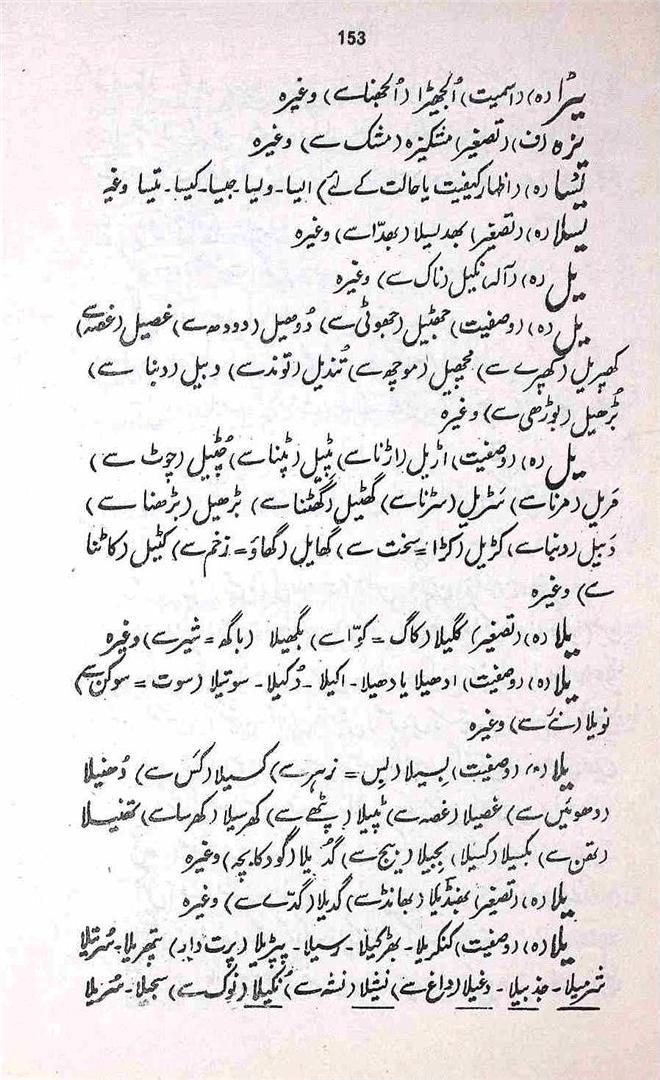 153
یڑا (ہ) (اسمیت) اُلجھیڑا (اُلجھنا سے) وغیرہ
یزہ (ف) (تصغیر) مشکیزہ (مشک سے) وغیرہ
یسا (ہ) (اظہار کیفیت یا حالت کے لئے) ایسا۔ ویسا۔ جیسا۔ کیسا۔ تیسا وغیرہ
یسلا (ہ) (تصغیر) بھدیسلا (بھدّا سے) وغیرہ
یل (ہ) (آلہ) نکیل (ناک سے) وغیرہ
یل (ہ) (وصفیت) جھٹیل (جھوٹی سے) دُودھیل (دودھ سے) غصیل (غصہ سے)
کھپریل (کھپرے سے) مچھیل (موچھ سے) تُندیل (توند سے) دبیل (دبنا سے)
بُڑھیل (بوڑھی سے) وغیرہ
یل (ہ) (وصفیت) اڑیل (اڑنا سے) پٹیل (پٹنا سے) چُٹیل (چوٹ سے)
مَریل (مرنا سے) سَڑیل (سڑنا سے) گھٹیل (گھٹنا سے) بڑھیل (بڑھنا سے)
دَبیل (دبنا سے) کڑیل (کڑا = سخت سے) گھایل (گھاؤ = زخم سے) کٹیل (کاٹنا
سے) وغیرہ
یلا (ہ) (تصغیر) کگیلا (کاگ = کوّا سے) بگھیلا (باگھ = شیر سے) وغیرہ
یلا (ہ) (وصفیت) ادھیلا یا دھیلا۔ اکیلا۔ دُکیلا۔ سوتیلا (سوت = سوکن سے)
نویلا (نئے سے) وغیرہ
یلا (ہ) (وصفیت) بِسیلا (بِس = زہر سے) کسیلا (کَس سے) دُھنیلا
(دھوئیں سے) غصیلا (غصہ سے) پٹیلا (پٹھے سے) کھرسیلا (کھرسا سے) تھنیلا
(تھن سے) بکسیلا (کسیلا) بجیلا (بیج سے) گدُیلا (گود کا بچہ) وغیرہ
یلا (ہ) (تصغیر) بھنڈیلا (بھانڈ سے) گدیلا (گدّے سے) وغیرہ
یلا (ہ) (وصفیت) کنکریلا۔ بھڑکیلا۔ رسیلا۔ پپڑیلا (پرت دار) پتھریلا۔ سُرتیلا
شرمیلا۔ جذبیلا۔ دغیلا (داغ سے) نشیلا (نشہ سے) نُکیلا (نوک سے) سجیلا۔ سُریلا